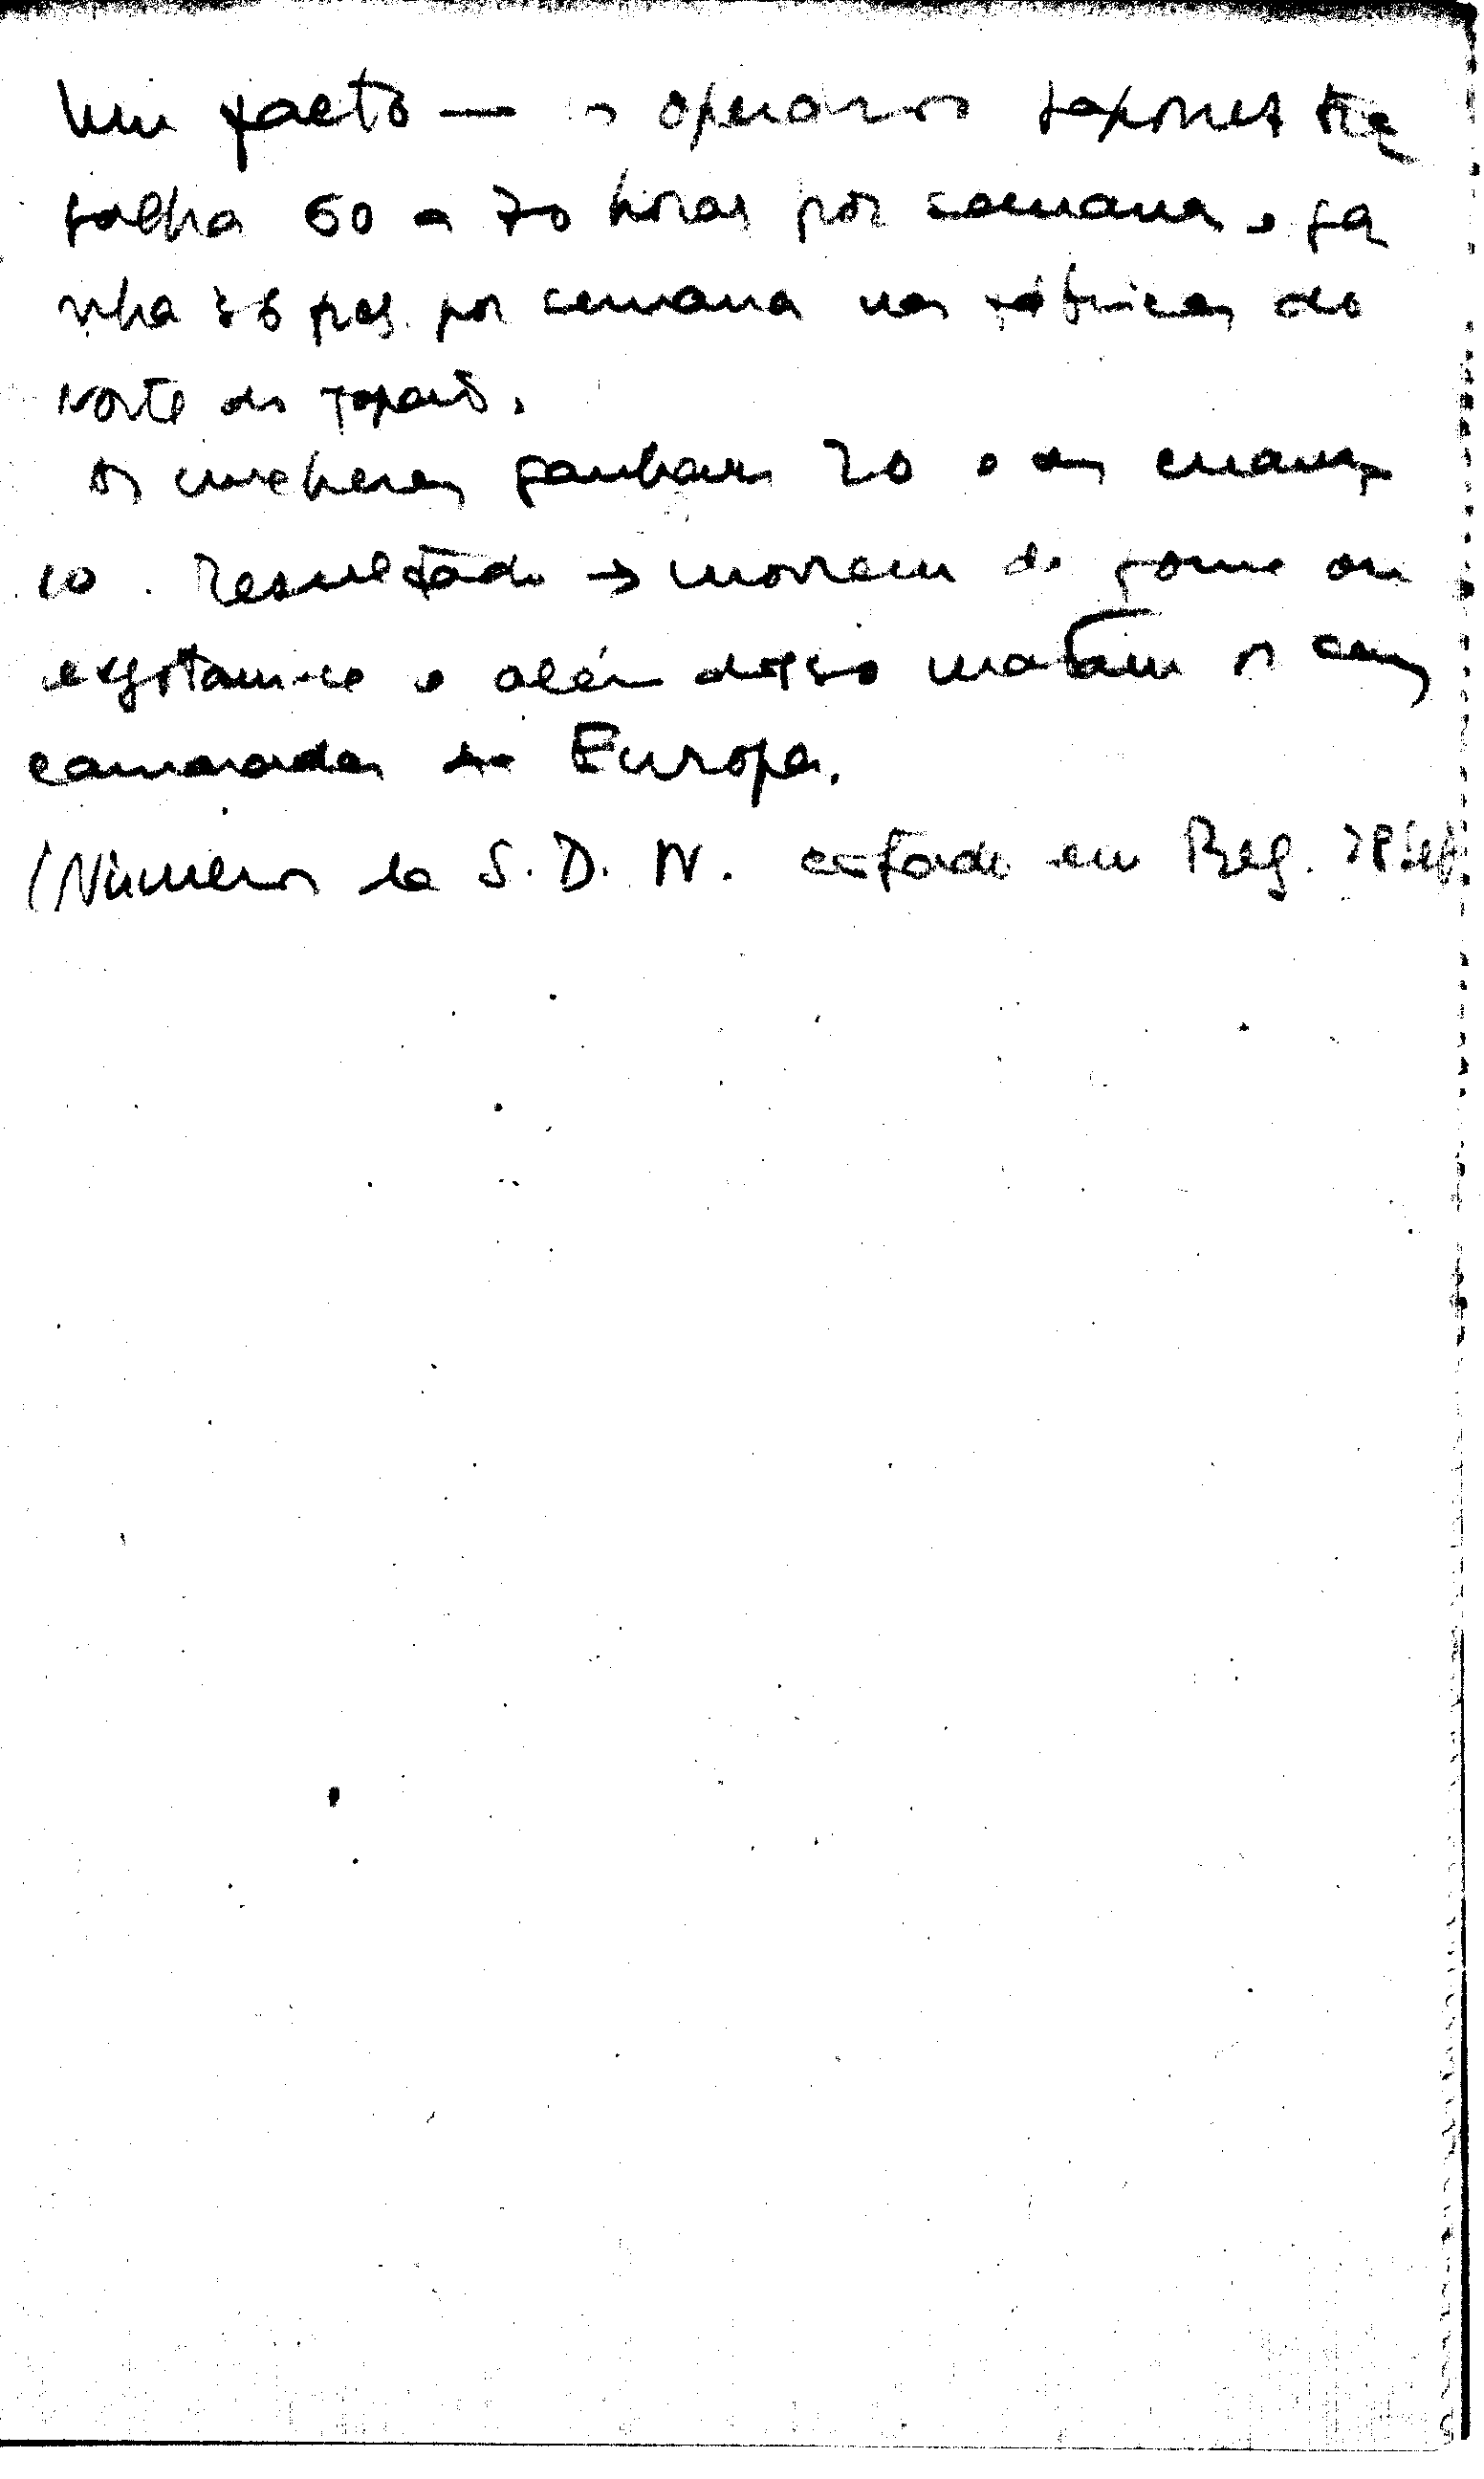 Um facto — o operario japones tra
balha 60 a 70 horas por semana e ga
nha 36 frcs. por semana nas fabricas do
norte do japão.
As mulheres ganham 20 e as crianças
10. Resultado → morrem de fome ou
exgotam-se e além disso matam os seus
camaradas da Europa.
(Numeros da S. D. N. citado em Reg.